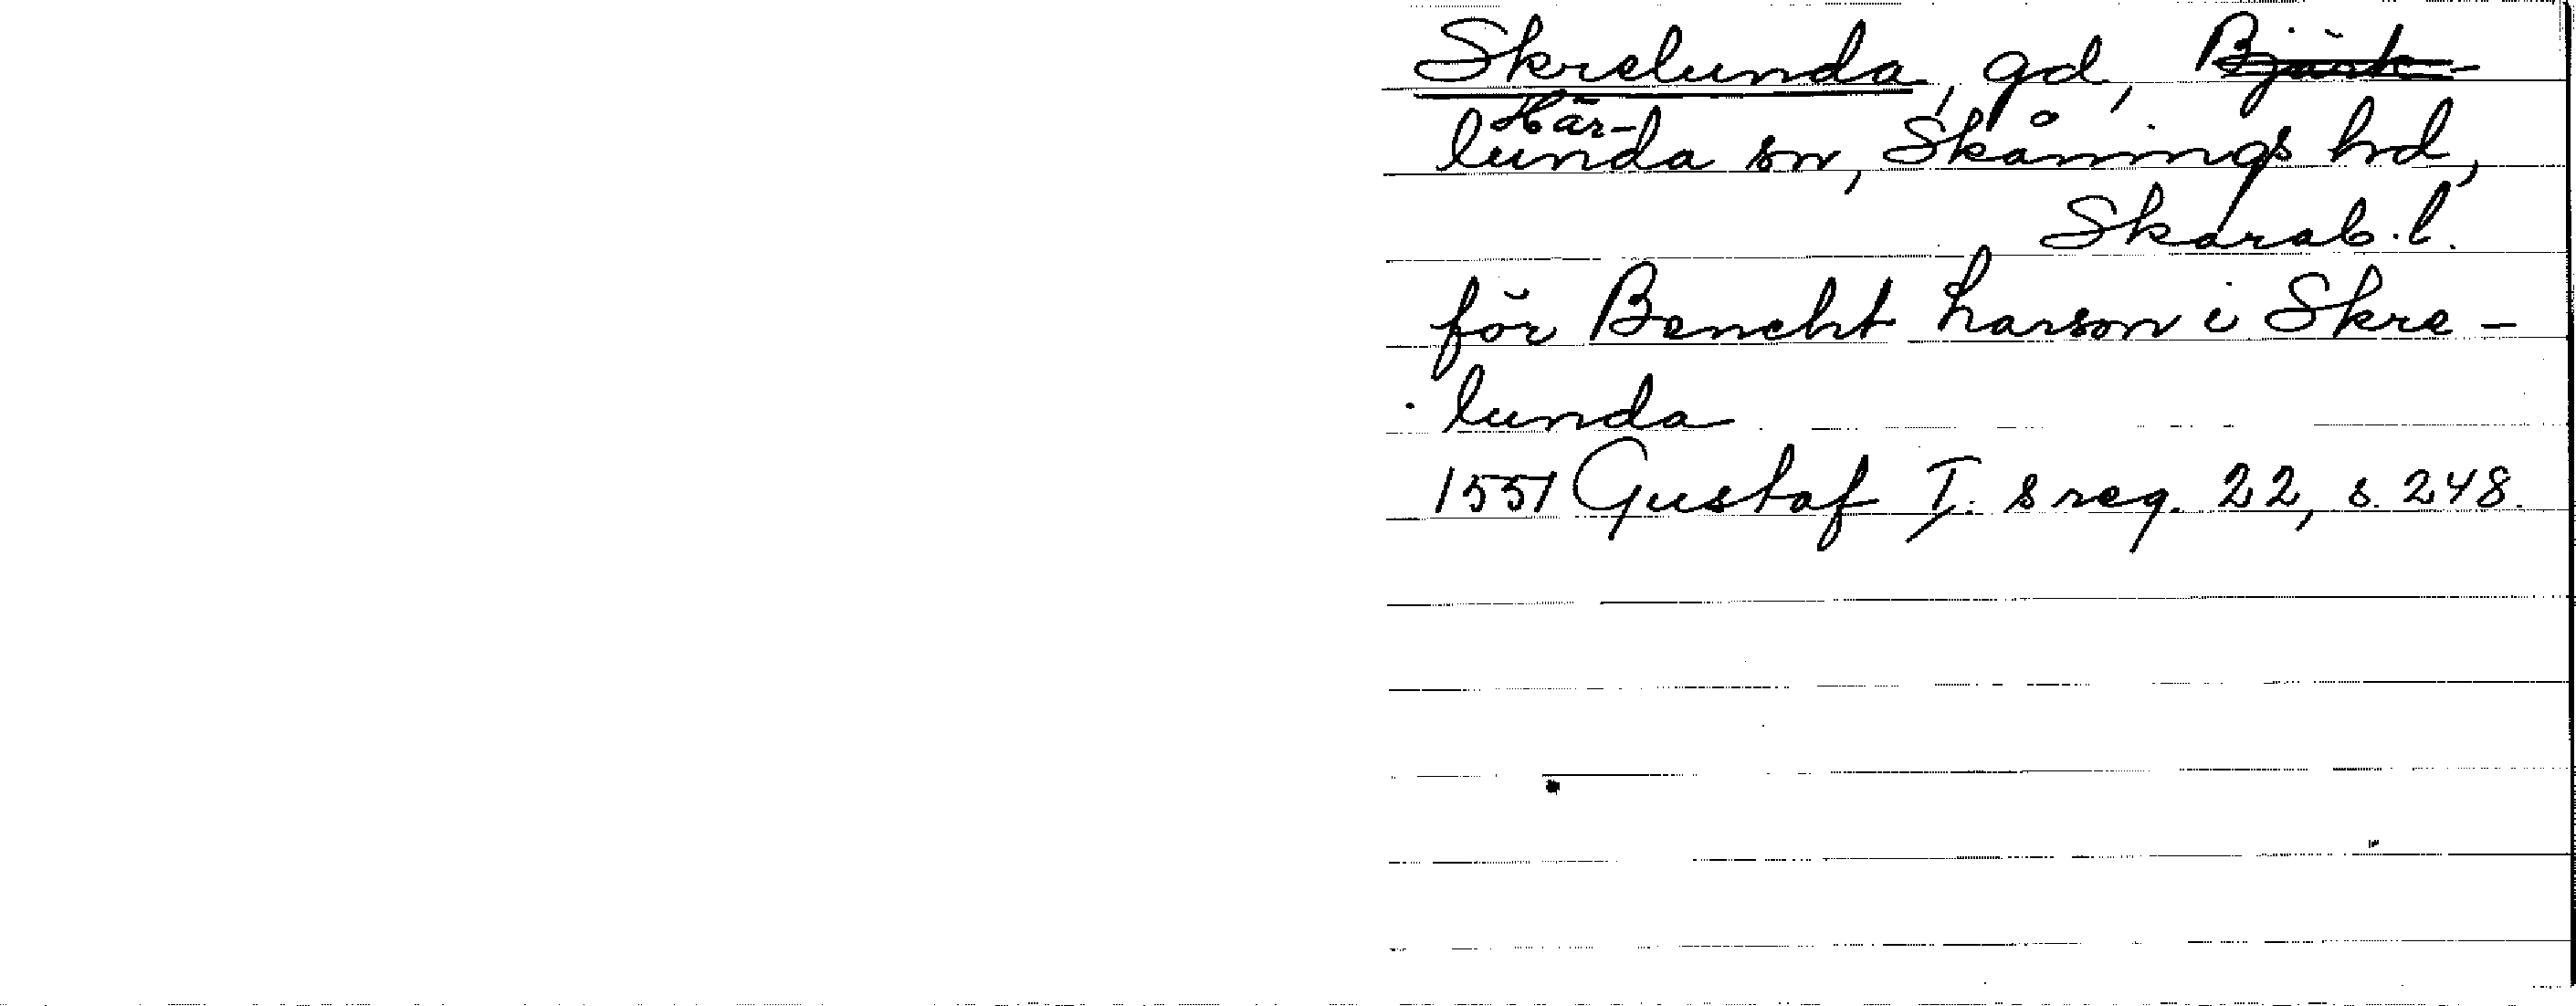 Skrelunda, gd, Bjärk-
Här-
lunda sn, Skånings hd,
Skarab. l.
för Bencht Larson i Skre-
lunda
1551 Gustaf I:s reg. 22, s. 248.